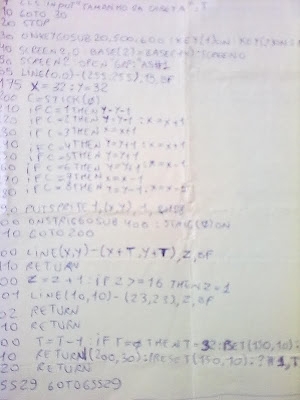 CLS: INPUT"TAMANHO DA CANETA",T
10 GOTO 30
20 STOP
30 ONKEYGOSUB20,500,600:KEY(1)ON:KEY(2)ON
40 SCREEN3,0:BASE(22)=BASE( SCREEN0
50 SCREEN2:OPEN"GRP:"AS#1
65 LINE(0,0)-(255,255),15,BF
175 X=32:Y=32
200 C=STICK(0)
210 ifC=1THENY=Y-1
20 ifC=2THENY=Y-1:X=X+1
30 ifC=3THENX=X+1
40 ifC=4THENY=Y+1:X=X+1
50 ifC=5THENY=Y+1
60 ifC=6THENY=Y+1:X=X-1
70 ifC=7THENX=X-1
80 ifC=8THENY=Y-1:X=X-1
90 PUTSPRITE 1,(X,Y),1,
00 ONSTRIGGOSUB 400:STRIG(0)ON
10 GOTO200
00 LINE(X,Y)-(X+T,Y+T),Z,BF
10 RETURN
00 Z=Z+1:IF Z>=16 THENZ=1
01 LINE(10,10)-(23,23),Z,BF
02 RETURN
10 RETURN
00 T=T-1:IF T=0THENT=32:PSET(150,10):
10 RETURN (200,30):PRESET(150,10):?#1,T
20 RETURN
65529 GOTO65529